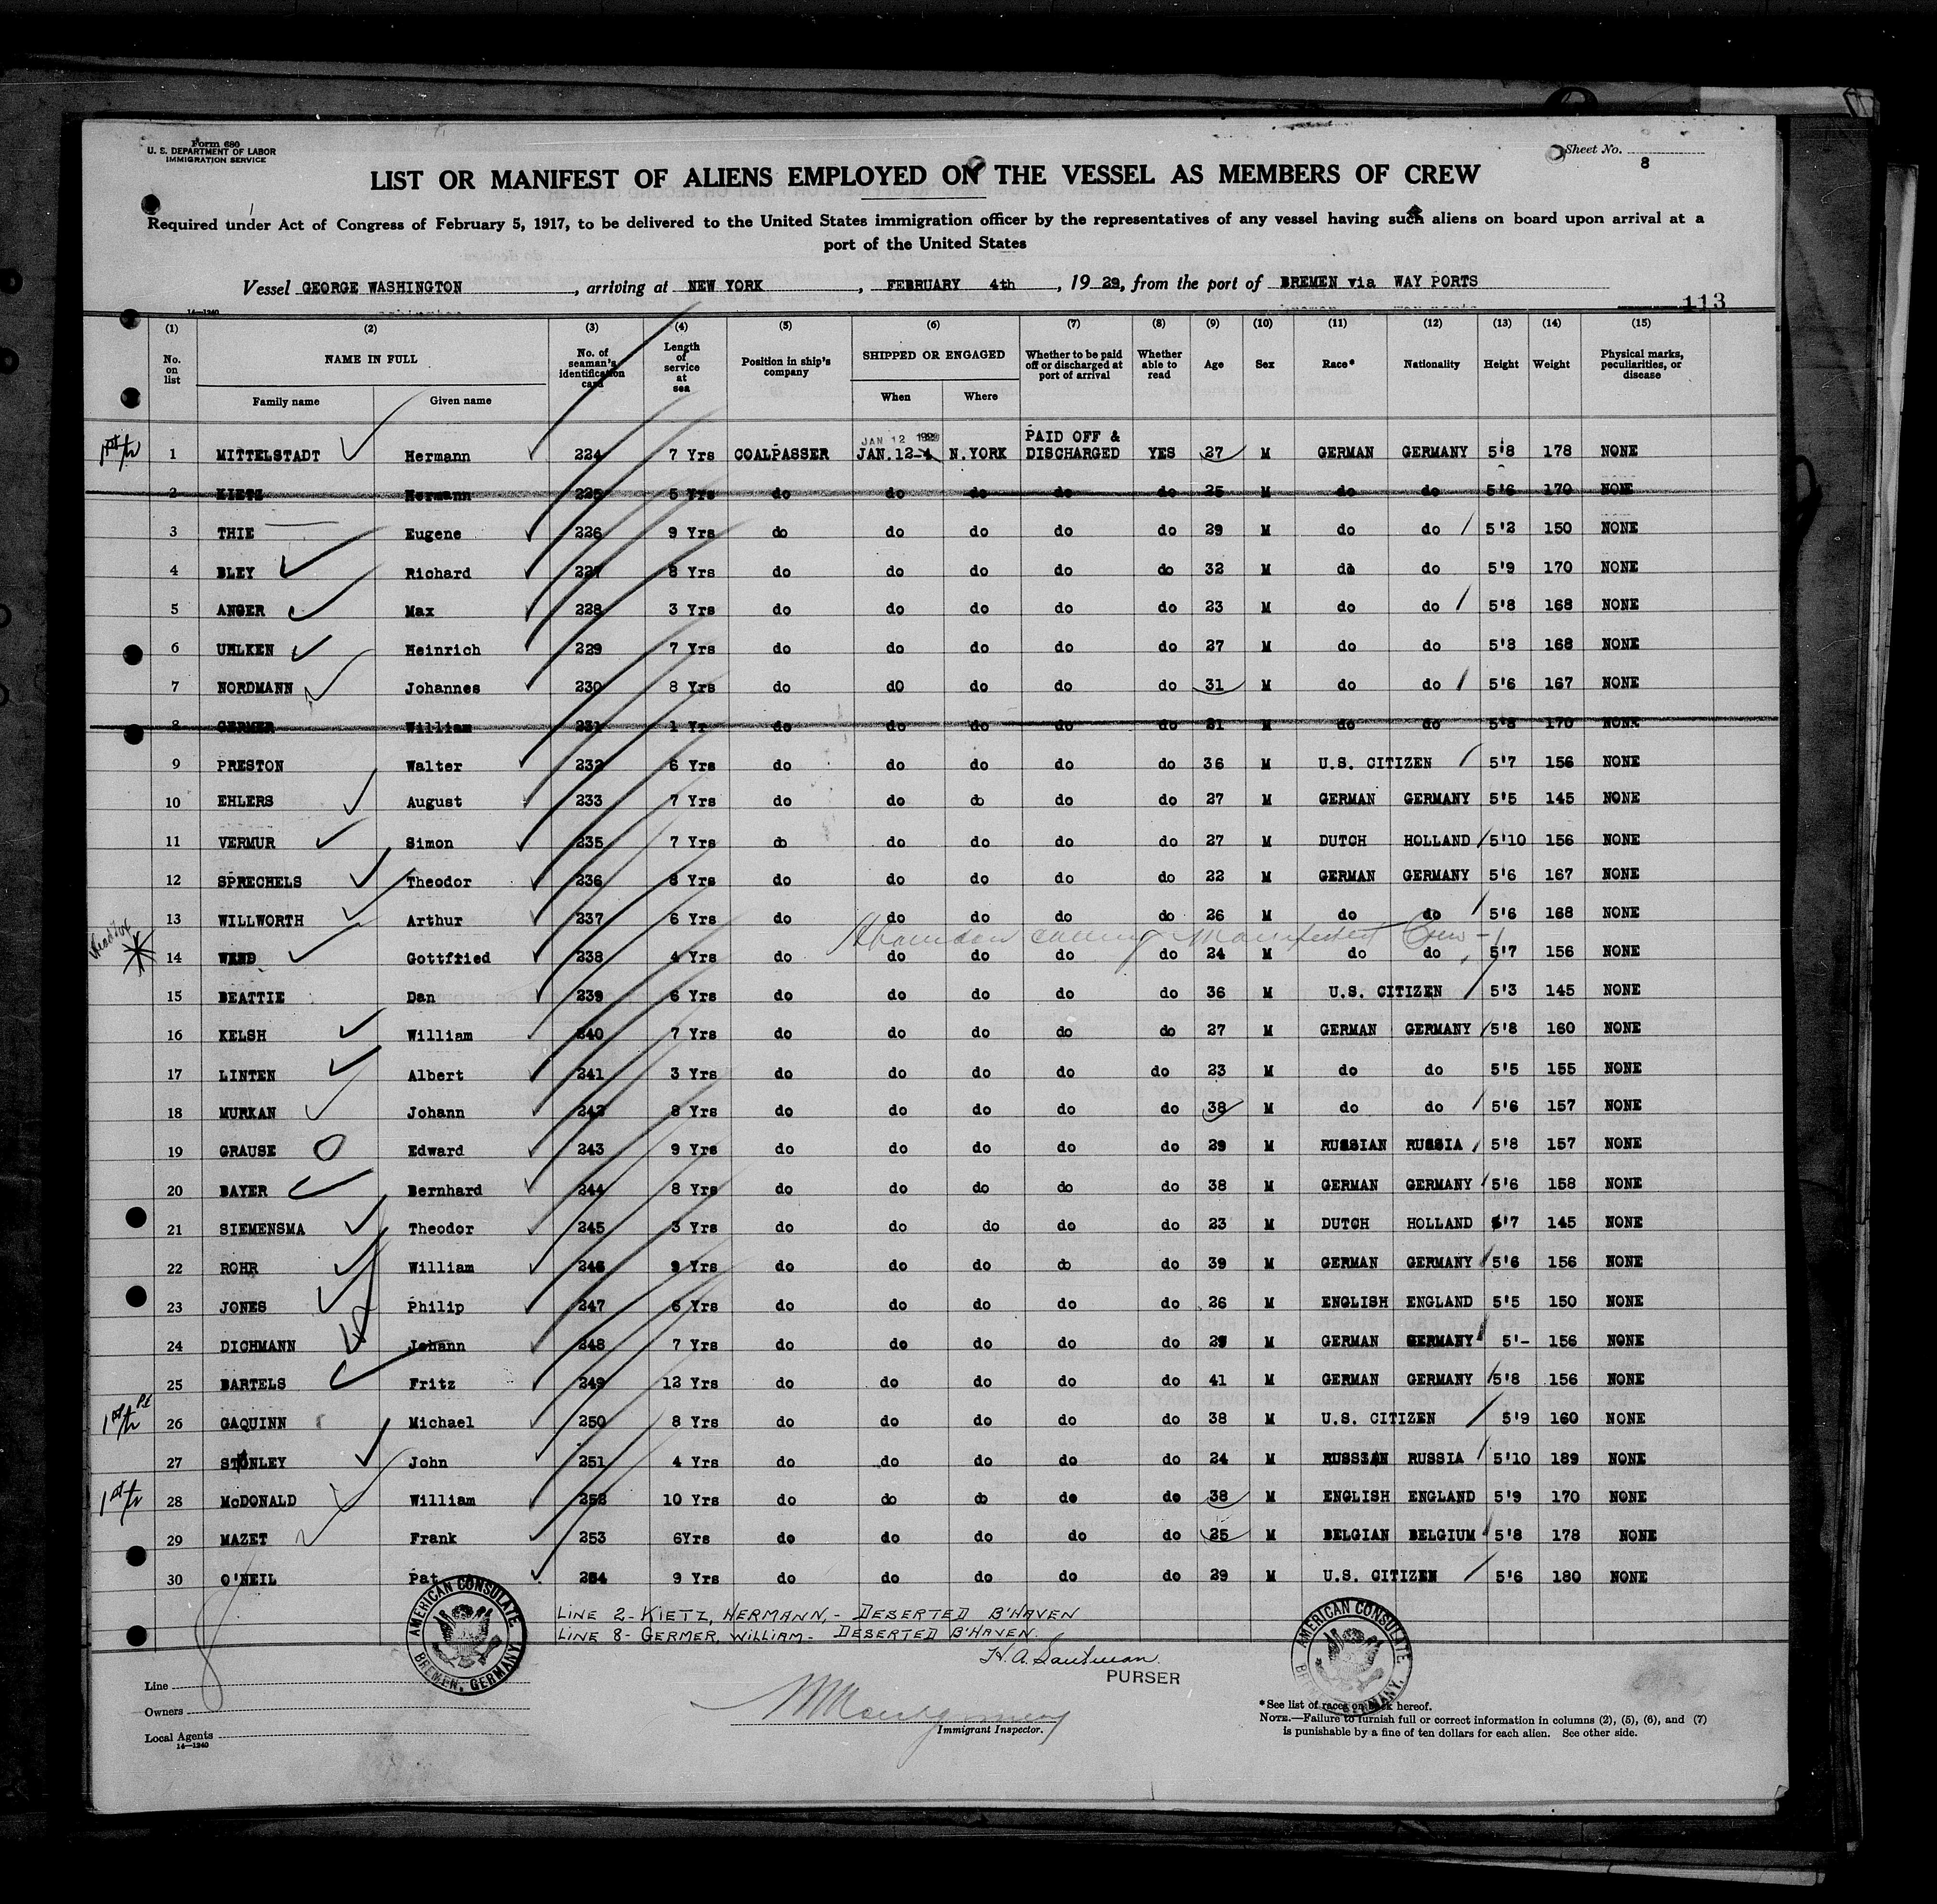 Form 680
U. S. DEPARTMENT OF LABOR
IMMIGRATION SERVICE
Sheet No.
8
LIST OR MANIFEST OF ALIENS EMPLOYED ON THE VESSEL AS MEMBERS OF CREW
Required under Act of Congress of February 5, 1917, to be delivered to the United States immigration officer by the representatives of any vessel having such aliens on board upon arrival at a
port of the United States
Vessel GEORGE WASHINGTON, arriving at NEW YORK, FEBRUARY 4th, 1929, from the port of BREMEN via WAY PORTS
113
14—1240
(1) (2) (3) (4) (5) (6) (7) (8) (9) (10) (11) (12) (13) (14) (15)
No. on list NAME IN FULL Family name Given name No. of seaman's identification card Length of service at sea Position in ship's company SHIPPED OR ENGAGED When Where Whether to be paid off or discharged at port of arrival Whether able to read Age Sex Race* Nationality Height Weight Physical marks, peculiarities, or disease
JAN 12 1929 PAID OFF &
1 MITTELSTADT Hermann 224 7 Yrs COALPASSER JAN.12- N.YORK DISCHARGED YES 27 M GERMAN GERMANY 5'8 178 NONE
2 KIETZ Hermann 225 5 Yrs do do do do do 25 M do do 5'6 170 NONE
3 THIE Eugene 226 9 Yrs do do do do do 29 M do do 5'2 150 NONE
4 BLEY Richard 227 8 Yrs do do do do do 32 M do do 5'9 170 NONE
5 ANGER Max 228 3 Yrs do do do do do 23 M do do 5'8 168 NONE
6 UHLKEN Heinrich 229 7 Yrs do do do do do 27 M do do 5'8 168 NONE
7 NORDMANN Johannes 230 8 Yrs do dO do do do 31 M do do 5'6 167 NONE
8 GERMER William 231 1 Yr do do do do do 21 M do do 5'8 170 NONE
9 PRESTON Walter 232 6 Yrs do do do do do 36 M U.S. CITIZEN 5'7 156 NONE
10 EHLERS August 233 7 Yrs do do do do do 27 M GERMAN GERMANY 5'5 145 NONE
11 VERMUR Simon 235 7 Yrs do do do do do 27 M DUTCH HOLLAND 5'10 156 NONE
12 SPRECHELS Theodor 236 8 Yrs do do do do do 22 M GERMAN GERMANY 5'6 167 NONE
13 WILLWORTH Arthur 237 6 Yrs do do do do do 26 M do do 5'6 168 NONE
14 WEND Gottfried 238 4 Yrs do do do do do 24 M do do 5'7 156 NONE
15 BEATTIE Dan 239 6 Yrs do do do do do 36 M U.S. CITIZEN 5'3 145 NONE
16 KELSH William 240 7 Yrs do do do do do 27 M GERMAN GERMANY 5'8 160 NONE
17 LINTEN Albert 241 3 Yrs do do do do do 23 M do do 5'5 155 NONE
18 MURKAN Johann 242 8 Yrs do do do do do 38 M do do 5'6 157 NONE
19 GRAUSE Edward 243 9 Yrs do do do do do 29 M RUSSIAN RUSSIA 5'8 157 NONE
20 BAYER Bernhard 244 8 Yrs do do do do do 38 M GERMAN GERMANY 5'6 158 NONE
21 SIEMENSMA Theodor 245 3 Yrs do do do do do 23 M DUTCH HOLLAND 5'7 145 NONE
22 ROHR William 246 9 Yrs do do do do do 39 M GERMAN GERMANY 5'6 156 NONE
23 JONES Philip 247 6 Yrs do do do do do 26 M ENGLISH ENGLAND 5'5 150 NONE
24 DICHMANN Johann 248 7 Yrs do do do do do M GERMAN GERMANY 5'- 156 NONE
25 BARTELS Fritz 249 12 Yrs do do do do do 41 M GERMAN GERMANY 5'8 156 NONE
26 GAQUINN Michael 250 8 Yrs do do do do do 38 M U.S. CITIZEN 5'9 160 NONE
27 STONLEY John 251 4 Yrs do do do do do 24 M RUSSIAN RUSSIA 5'10 189 NONE
28 McDONALD William 252 10 Yrs do do do do do 38 M ENGLISH ENGLAND 5'9 170 NONE
29 MAZET Frank 253 6Yrs do do do do do 25 M BELGIAN BELGIUM 5'8 178 NONE
30 O'NEIL Pat 254 9 Yrs do do do do do 29 M U.S. CITIZEN 5'6 180 NONE
LINE 2- KIETZ, HERMANN,- DESERTED B'HAVEN
LINE 8- GERMER, WILLIAM- DESERTED B'HAVEN.
AMERICAN CONSULATE BREMEN, GERMANY.
AMERICAN CONSULATE BREMEN, GERMANY.
H.A.
PURSER
Line
Owners
Local Agents
14—1240
Immigrant Inspector.
*See list of races on back hereof.
NOTE.—Failure to furnish full or correct information in columns (2), (5), (6), and (7)
is punishable by a fine of ten dollars for each alien. See other side.